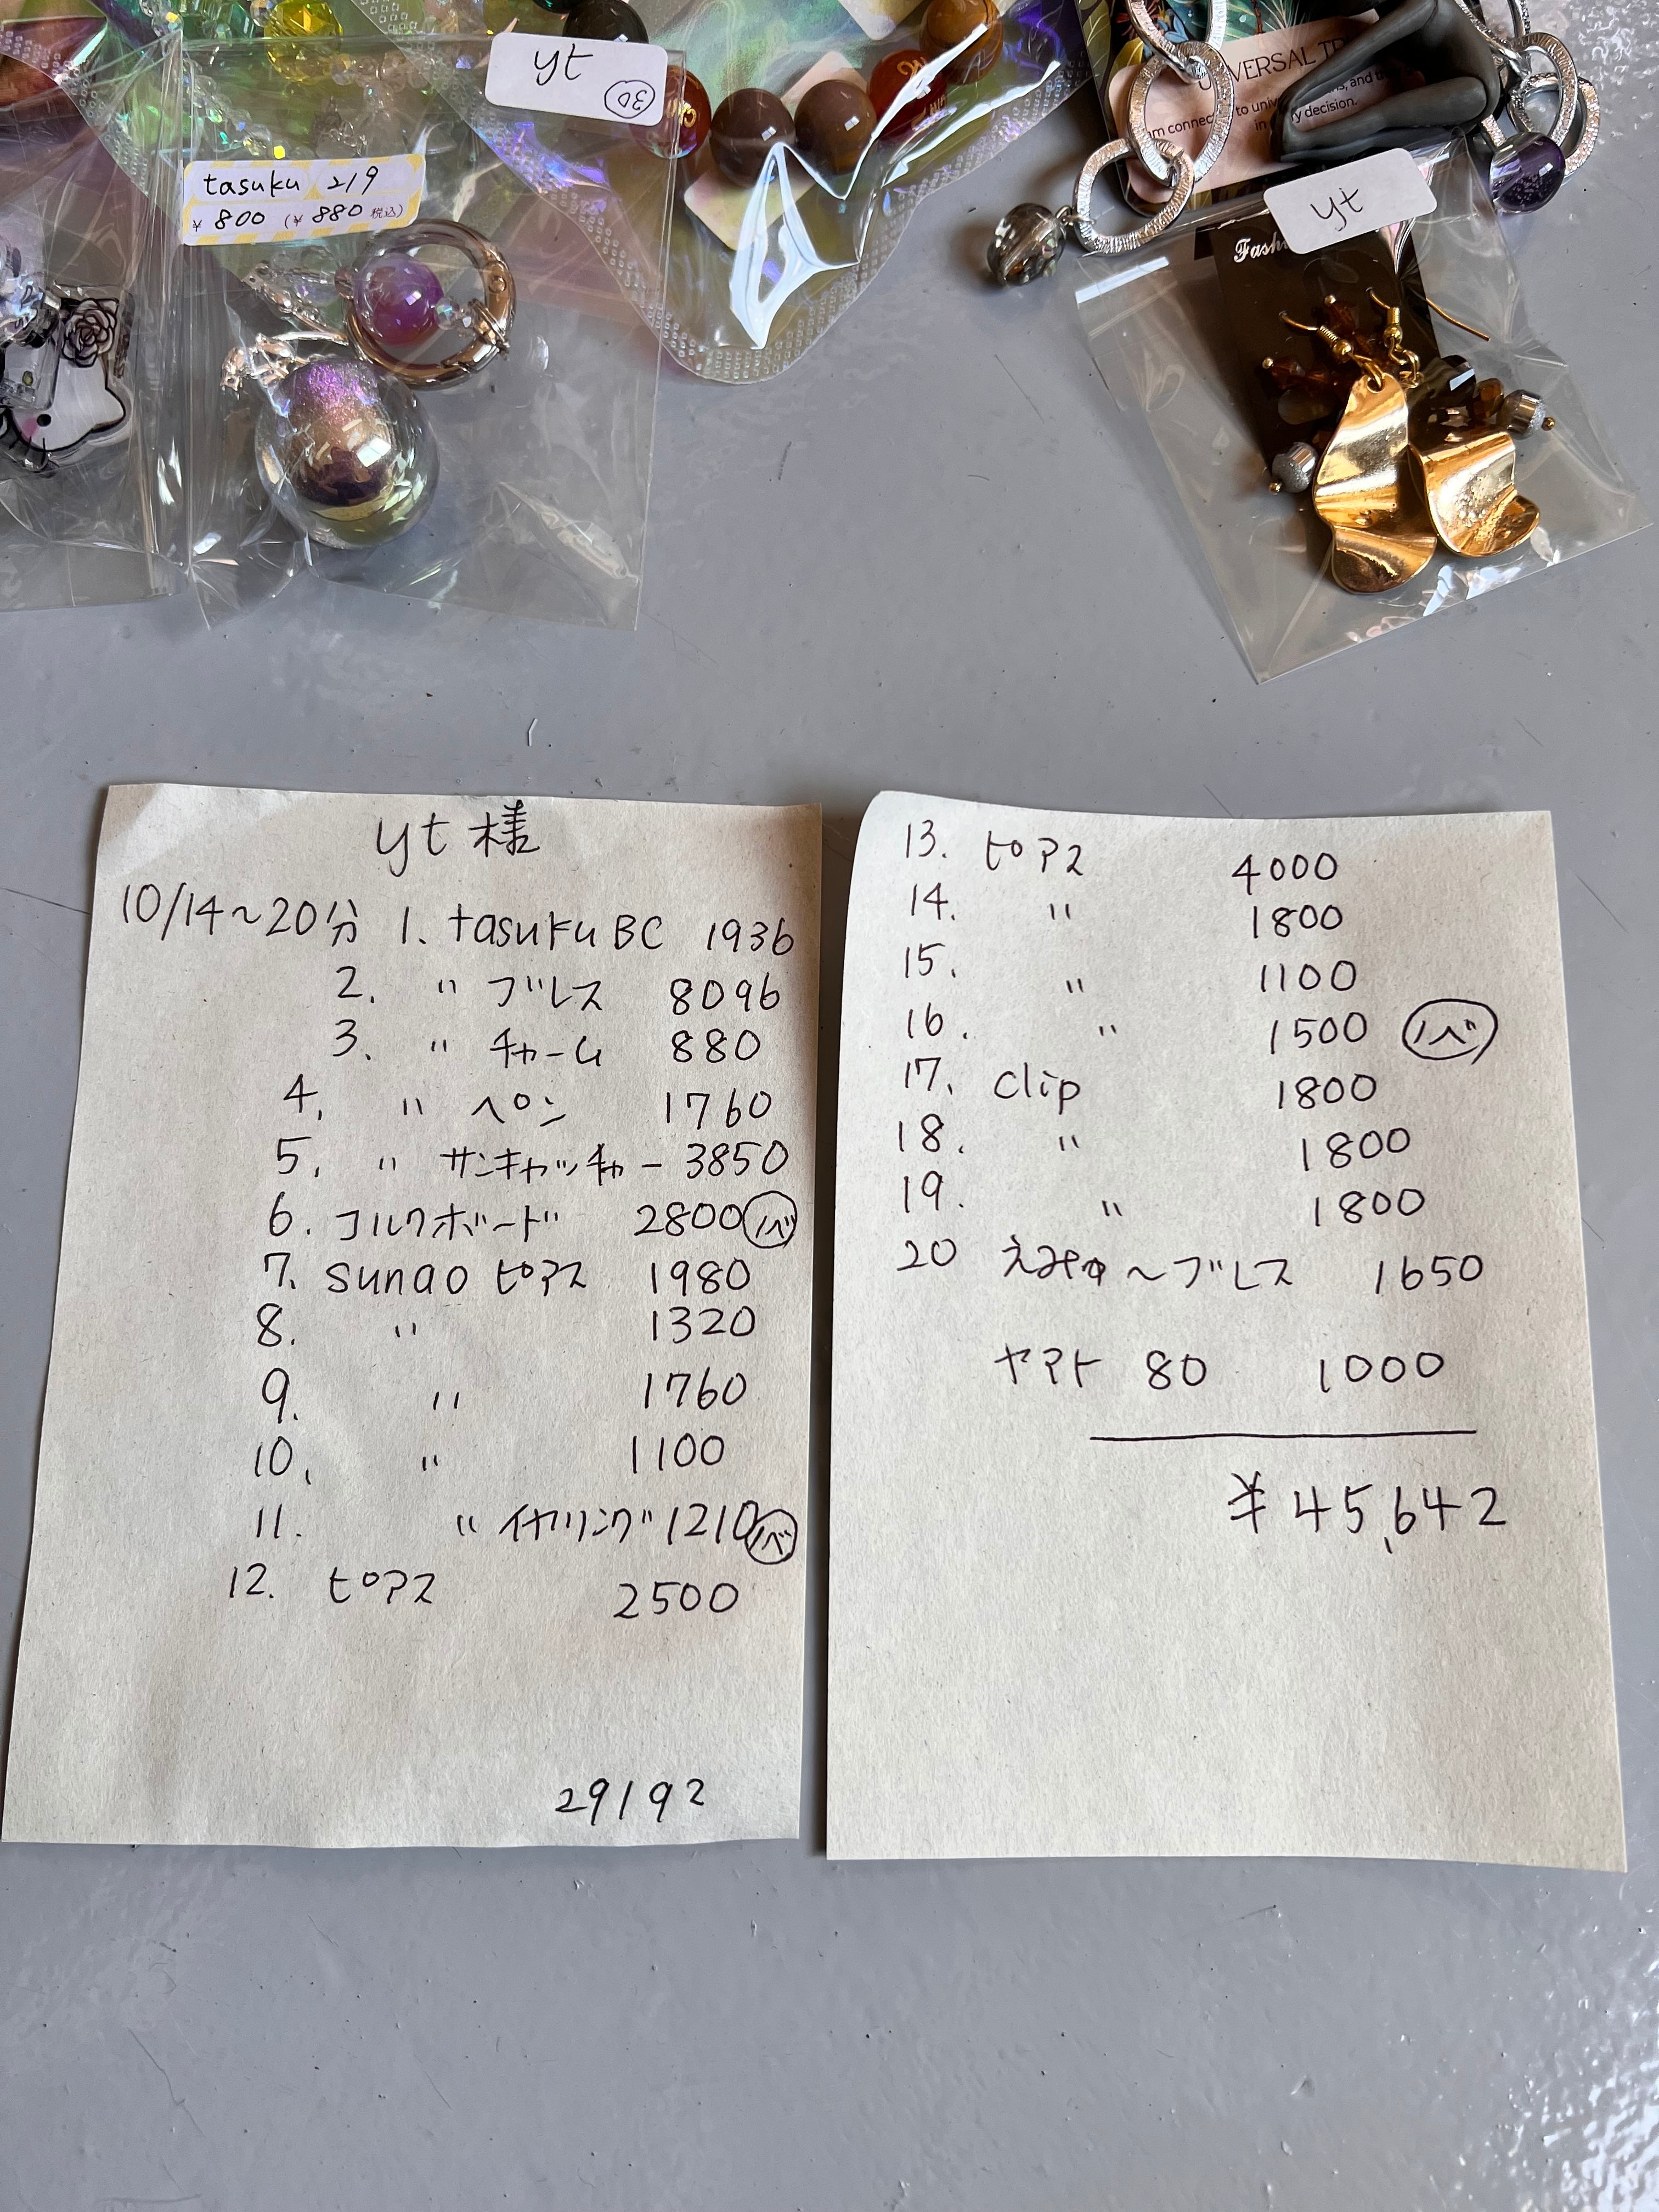 yt
30
tasuku 219
¥800 (¥880 税込)
yt
Fash
connec to univ s, and th
in y decision.
yt 様
10/14~20分 1. tasuku BC 1936
2. 〃 ブレス 8096
3. 〃 チャーム 880
4. 〃 ペン 1760
5. 〃 サンキャッチャー 3850
6. コルクボード 2800 ノベ
7. sunao ピアス 1980
8. 〃 1320
9. 〃 1760
10. 〃 1100
11. 〃 イヤリング 1210 ノベ
12. ピアス 2500
29192
13. ピアス 4000
14. 〃 1800
15. 〃 1100
16. 〃 1500 ノベ
17. clip 1800
18. 〃 1800
19. 〃 1800
20 えみゅ~ブレス 1650
ヤマト 80 1000
¥45,642